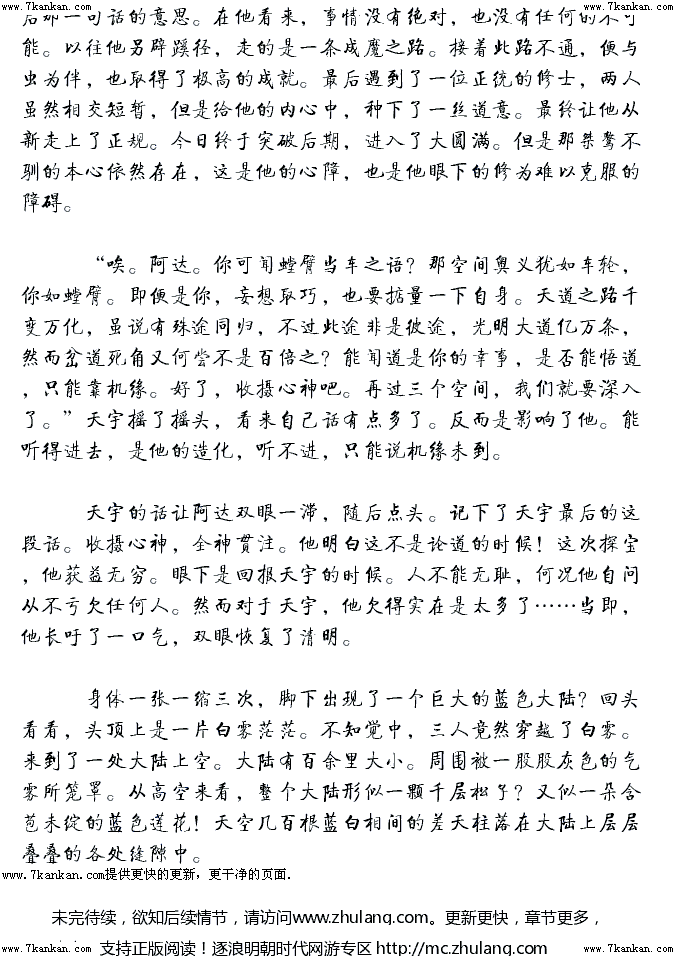 www.7kankan.com www.7kankan.com
后那一句话的意思。在他看来，事情没有绝对，也没有任何的不可
能。以往他另辟蹊径，走的是一条成魔之路。接着此路不通，便与
虫为伴，也取得了极高的成就。最后遇到了一位正统的修士，两人
虽然相交短暂，但是给他的内心中，种下了一丝道意。最终让他从
新走上了正规。今日终于突破后期，进入了大圆满。但是那桀骜不
驯的本心依然存在，这是他的心障，也是他眼下的修为难以克服的
障碍。
“唉。阿达。你可闻螳臂当车之语？那空间奥义犹如车轮，
你如螳臂。即便是你，妄想取巧，也要掂量一下自身。天道之路千
变万化，虽说有殊途同归，不过此途非是彼途，光明大道亿万条，
然而岔道死角又何尝不是百倍之？能闻道是你的幸事，是否能悟道
，只能靠机缘。好了，收摄心神吧。再过三个空间，我们就要深入
了。”天宇摇了摇头，看来自己话有点多了。反而是影响了他。能
听得进去，是他的造化，听不进，只能说机缘未到。
天宇的话让阿达双眼一滞，随后点头。记下了天宇最后的这
段话。收摄心神，全神贯注。他明白这不是论道的时候！这次探宝
，他获益无穷。眼下是回报天宇的时候。人不能无耻，何况他自问
从不亏欠任何人。然而对于天宇，他欠得实在是太多了……当即，
他长吁了一口气，双眼恢复了清明。
身体一张一缩三次，脚下出现了一个巨大的蓝色大陆？回头
看看，头顶上是一片白雾茫茫。不知觉中，三人竟然穿越了白雾。
来到了一处大陆上空。大陆有百余里大小。周围被一股股灰色的气
雾所笼罩。从高空来看，整个大陆形似一颗千层松子？又似一朵含
苞未绽的蓝色莲花！天空几百根蓝白相间的差天柱落在大陆上层层
叠叠的各处缝隙中。
www.7kankan.com提供更快的更新，更干净的页面.
未完待续，欲知后续情节，请访问www.zhulang.com。更新更快，章节更多，
www.7kankan.com 支持正版阅读！逐浪明朝时代网游专区 http://mc.zhulang.com www.7kankan.com